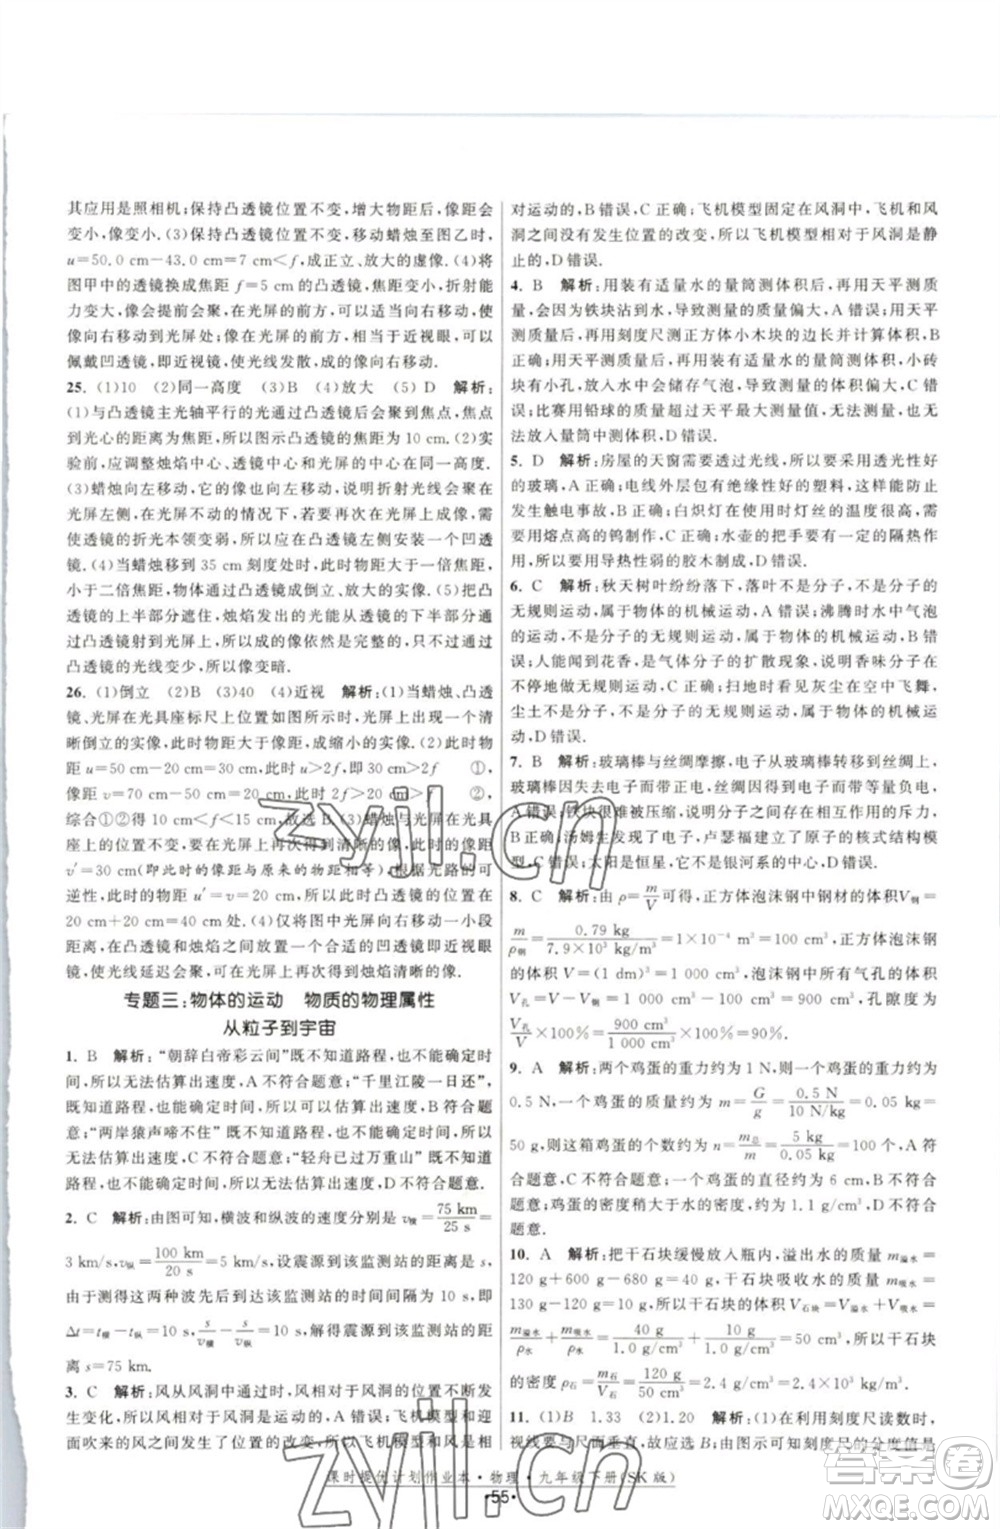 其应用是照相机;保持凸透镜位置不变,增大物距后,像距会
变小,像变小.(3)保持凸透镜位置不变,移动蜡烛至图乙时,
u=50.0 cm-43.0 cm=7 cm<f,成正立、放大的虚像.(4)将
图甲中的透镜换成焦距 f=5 cm 的透镜,焦距变小,折射能
力变大,像会提前会聚,在光屏的前方成像,光屏应向右移动,
才能将像移动到光屏处;在光屏的前方成像,类似于近视眼,可以
佩戴凹透镜,即近视镜,使光线发散,成的像向右移动.
25. (1)10 (2)同一高度 (3)B (4)放大 (5)D 解析:
(1)与凸透镜主光轴平行的光通过凸透镜后会聚到焦点,焦点
到光心的距离为焦距,所以图示凸透镜的焦距为 10 cm.(2)实
验前,应调整烛焰中心、透镜中心和光屏中心在同一高度.
(3)蜡烛向左移动,它的像也向左移动,说明折射光线会聚在
光屏左侧,在不移动光屏的情况下,若要再次在光屏上成像,
需要将折光本领变弱,所以可在凸透镜左侧安装一个凹透镜.
(4)当蜡烛移到 35 cm 刻度处时,此时物距大于一倍焦距、
小于二倍焦距,物体通过凸透镜成倒立、放大的实像.(5)遮住
透镜的上半部分后,烛焰发出的光线仍有一部分通过下半部分
凸透镜会聚到光屏上,所以成的像依然是完整的,只是由于通过
凸透镜的光线变少,所以像变暗.
26. (1)倒立 (2)B (3)40 (4)近视 解析:(1)当蜡烛、凸透
镜、光屏在光具座标尺上位置如图所示时,光屏上呈现一个清
晰倒立的实像,此时物距大于像距,成倒立、缩小的实像.(2)物
距 u=50 cm-20 cm=30 cm,此时 u>2f,即 30 cm>2f ①,
像距 v=70 cm-50 cm=20 cm,此时 2f>v>f ②,
综合①②得 10 cm<f<15 cm,故选 B.(3)蜡烛与凸透镜的
v′=30 cm(即此时的像距与原来的物距相等),根据光路的可
逆性,此时物距 u′=v=20 cm,此时蜡烛应该放置在
20 cm+20 cm=40 cm 处.(4)仅将图中光屏向右移动一小段
距离,在凸透镜和烛焰之间放置一个合适的凹透镜即近视眼
镜,使光线延迟会聚,可在光屏上再次得到烛焰清晰的像.
专题三:物体的运动 物质的物理属性
从粒子到宇宙
1. B 解析:“朝辞白帝彩云间”既不知道路程,也不能确定时
间,所以无法估算出速度,A 不符合题意;“千里江陵一日还”,既
知道路程,又知道时间,所以可以估算出速度,B 符合题意;
“两岸猿声啼不住”既不知道路程,也不能确定时间,所以无
法估算出速度,C 不符合题意;“轻舟已过万重山”,既不知道
路程,也不能确定时间,所以无法估算出速度,D 不符合题意.
2. C 解析:由图可知,横波和纵波的速度分别是 v横=75 km/25 s=
3 km/s,v纵=100 km/20 s=5 km/s,设震源到该监测站的距离是 s,
由于测得这两种波先后到达该监测站的时间间隔为 25 s-15 s,即
Δt=t横-t纵=s/v横-s/v纵=10 s,解得震源到该监测站的距
离 s=75 km.
3. C 解析:风从风洞中通过时,风相对于风洞的位置不断发
生变化,所以风相对于风洞是运动的,A 错误;飞机模型和迎
面吹来的风之间发生了位置的改变,所以飞机模型和风是相
对运动的,所以 B 错误,C 正确;飞机模型固定在风洞中,飞机和风
洞之间没有发生位置的改变,所以飞机模型相对于风洞是静
止的,D 错误.
4. B 解析:用装有适量水的量筒测体积后,再用天平测质
量,会因为铁块沾到水,导致测量的质量偏大,A 错误;用天平
测质量后,再用刻度尺测正方体小木块的边长并计算体积,B
正确;用天平测质量后,用装有适量水的量筒测体积,小砖
块有小孔,在水中会储存气泡,导致测量的体积偏大,C 错
误;比赛用铅球的质量超过天平最大测量值,无法测量,也无法
放入量筒中测体积,D 错误.
5. D 解析:房屋的天窗需要透过光线,所以要采用透光性好
的玻璃,A 正确;电线外层包有绝缘性好的塑料,这样能防止
发生触电事故,B 正确;白炽灯工作时灯丝的温度很高,所以要
用熔点高的钨制作,C 正确;水壶的把手要有一定的隔热作
用,所以要用导热性弱的胶木制成,D 错误.
6. C 解析:秋天树叶纷纷落下,落叶不是分子,不是分子的
无规则运动,属于物体的机械运动,A 错误;沸腾时水中气泡
的运动,不是分子的运动,属于物体的机械运动,B 错误;
在百花园中闻到花香,是气体分子的扩散现象,说明香味分子在
不停地做无规则运动,C 正确;扫地时看见灰尘在空中飞舞,
尘土不是分子,不是分子的无规则运动,属于物体的机械运
动,D 错误.
7. B 解析:玻璃棒与丝绸摩擦,电子从玻璃棒转移到丝绸上,
玻璃棒因失去电子而带正电,丝绸因得到电子而带负电,
A 错误;铁块很难被压缩,说明分子之间存在相互作用的斥力,
B 正确;汤姆生发现了电子,卢瑟福建立了原子的核式结构模
型,C 错误;太阳是恒星,它不是银河系的中心,D 错误.
8. C 解析:由 ρ=m/V 可得,正方体泡沫钢中钢材的体积 V钢=
m/ρ钢=0.79 kg/7.9×10³ kg/m³=1×10⁻⁴ m³=100 cm³,正方体泡沫钢
的体积 V=(1 dm)³=1 000 cm³,泡沫钢中所有气孔的体积
V孔=V-V钢=1 000 cm³-100 cm³=900 cm³,孔隙度为
V孔/V×100%=900 cm³/1 000 cm³×100%=90%.
9. A 解析:两个鸡蛋的重力约为 1 N,则一个鸡蛋的重力约为
0.5 N,一个鸡蛋的质量约为 m=G/g=0.5 N/10 N/kg=0.05 kg=
50 g,则这箱鸡蛋的个数约为 n=m总/m=5 kg/0.05 kg=100,A 符
合题意;一个鸡蛋的直径约为 6 cm,B 不符合题意,C 不符合
题意;鸡蛋的密度稍大于水的密度,约为 1.1 g/cm³,D 不符合
题意.
10. A 解析:把干石块缓慢放入瓶内,溢出水的质量 m溢水=
120 g+600 g-680 g=40 g,干石块吸收水的质量 m吸水=
130 g-120 g=10 g,所以干石块的体积 V石块=V溢水+V吸水=
m溢水/ρ水+m吸水/ρ水=40 g/1.0 g/cm³+10 g/1.0 g/cm³=50 cm³,所以干石块
的密度 ρ石=m石/V石=120 g/50 cm³=2.4 g/cm³=2.4×10³ kg/m³.
11. (1)B 1.33 (2)1.20 解析:(1)在利用刻度尺读数时,
视线要与尺面垂直,故应选 B;由图知,刻度尺的分度值是
课时提优计划作业本·物理·九年级下册(SK版)
·55·
zyjl.cn
zyjl.cn
答案圈
MXQE.COM